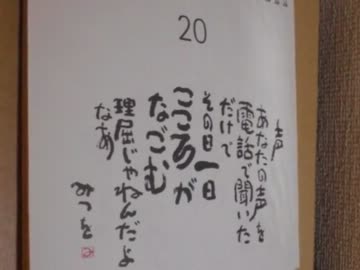 20
声
あなたの声を
電話で聞いた
だけで
その日一日
こころが
なごむ
理屈じゃねんだよ
なあ
みつを